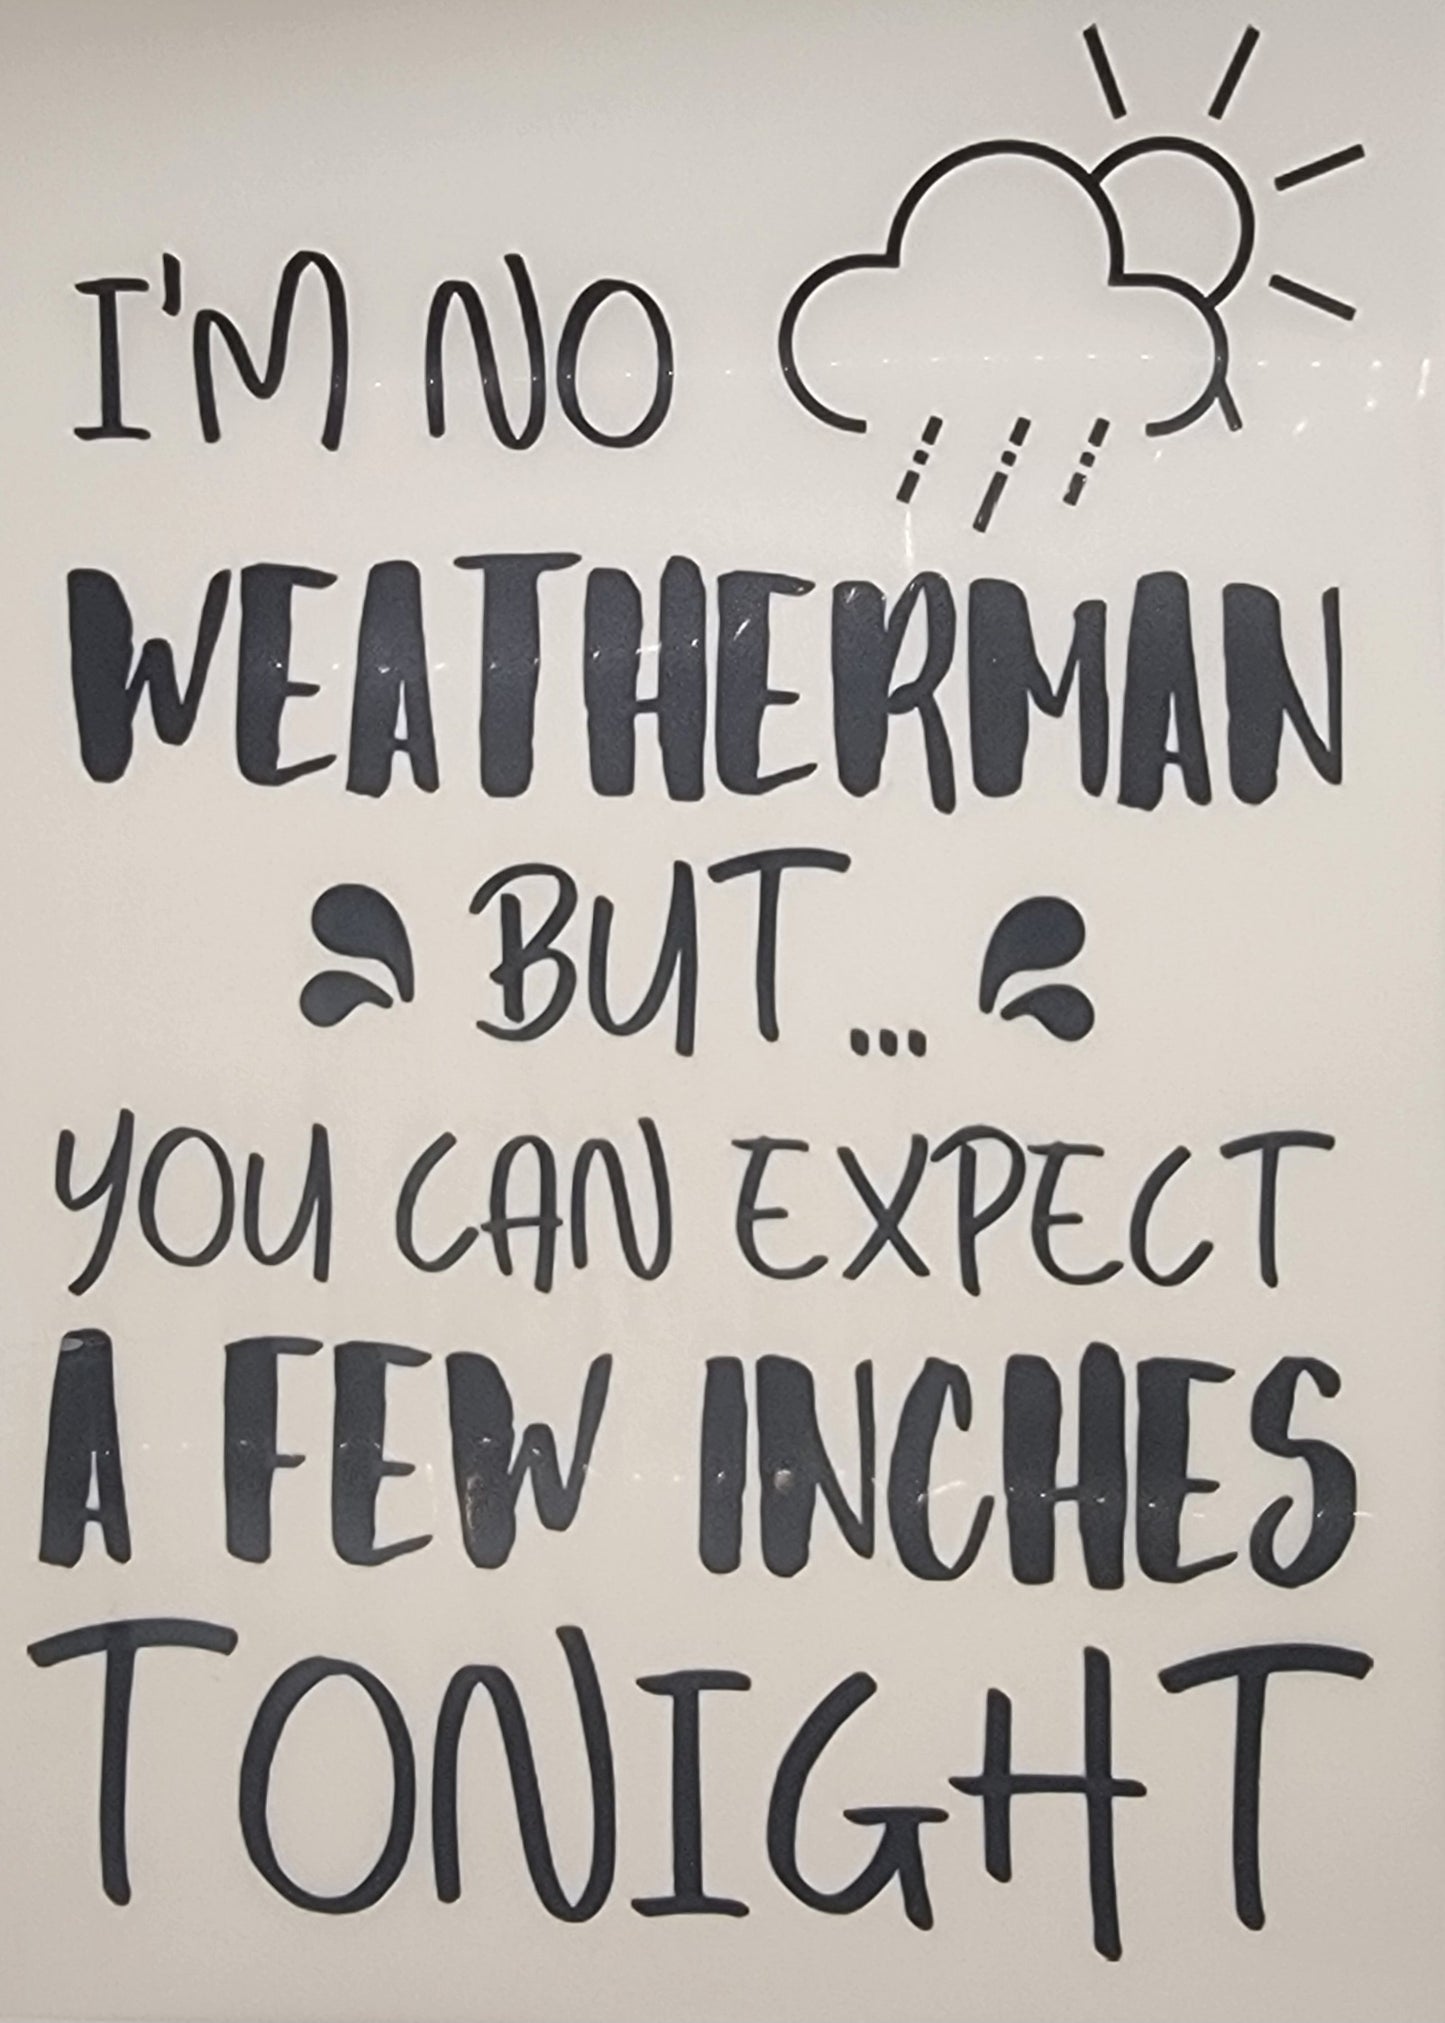 I'M NO
WEATHERMAN
BUT...
YOU CAN EXPECT
A FEW INCHES
TONIGHT